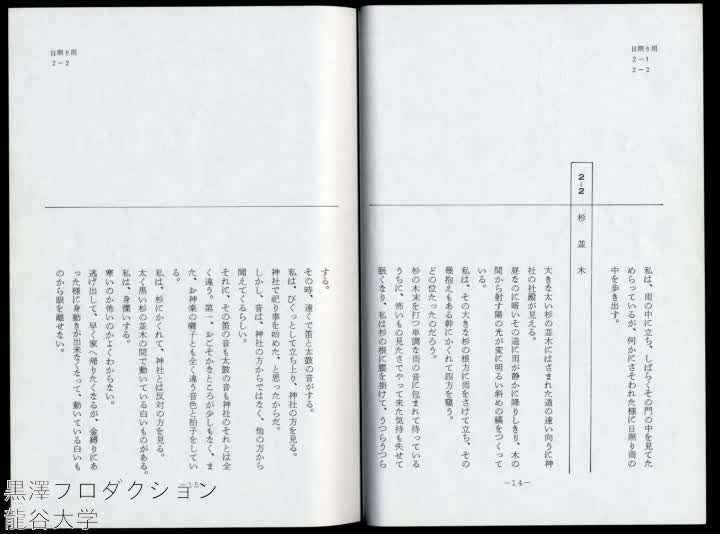 日照り雨
2-1
2-2
私は、雨の中に立ち、しばらくその門の中を見てた
めらっているが、何かにさそわれた様に日照り雨の
中を歩き出す。
2-2 杉並木
大きな太い杉の並木にはさまれた道の遠い向うに神
社の社殿が見える。
昼なのに暗いその道に雨が静かに降りしきり、木の
間から射す陽の光が変に明るい斜めの縞をつくって
いる。
私は、その大きな杉の根方に雨をさけて立ち、その
幾抱えもある幹にかくれて四方を窺う。
どの位たったのだろう。
杉の木末を打つ単調な雨の音に包まれて待っている
うちに、怖いもの見たさでやって来た気持も失せて
眠くなり、私は杉の根に腰を掛けて、うつらうつら
-14-
日照り雨
2-2
する。
その時、遠くで笛と太鼓の音がする。
私は、びくっとして立ち上り、神社の方を見る。
神社で祀り事を始めた、と思ったからだ。
しかし、音は、神社の方からではなく、他の方から
聞えてくるらしい。
それに、その笛の音も太鼓の音も神社のそれとは全
く違う。第一、おごそかなところが少しもなく、ま
た、お神楽の囃子とも全く違う音色と拍子をしてい
る。
私は、杉にかくれて、神社とは反対の方を見る。
太く黒い杉の並木の間で動いている白いものがある。
私は、身慄いする。
寒いのか怖いのかよくわからない。
逃げ出して、早く家へ帰りたくなるが、金縛りにあ
った様に身動きが出来なくなって、動いている白いも
のから眼を離せない。
-15-
黒澤プロダクション
龍谷大学